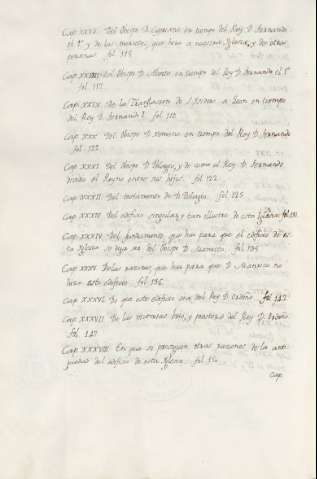 Cap. XXVII. Del Obispo D. Cypriano en tiempo del Rey D. Fernando
el 1º y de las mercedes, que hizo a nuestra Yglesia, y de otras
fol. 115
Cap. XXVIII. Del Obispo D. Alvito, en tiempo del Rey D. Fernando el 1º
fol. 117
Cap. XXIX. De la Translacion de S. Isidro a Leon en tiempo
del Rey D. Fernando 1º fol. 118
Cap. XXX. Del Obispo D. Ximeno en tiempo del Rey D. Fernando
fol. 122
Cap. XXXI. Del Obispo D. Pelagio, y de como el Rey D. Fernando
el Reyno entre sus hijos. fol. 122
Cap. XXXII. Del testamento de D. Pelagio. fol. 125
Cap. XXXIII. Del edificio singular, y tan illustre de esta Yglesia fol. 131
Cap. XXXIV. Del fundamento que hay para que el edificio de es-
ta Yglesia se diga ser del Obispo D. Manrico. fol. 135
Cap. XXXV. De las razones que hay para que D. Manrico no
hizo este edificio. fol. 136
Cap. XXXVI. Si que este edificio sea del Rey D. Ordoño fol. 142
Cap. XXXVII. De las victorias y del Rey D. Ordoño
fol. 147
Cap. XXXVIII. En que se prosiguen otras razones de la anti-
guedad del edificio de esta Yglesia. fol. 15
Cap.